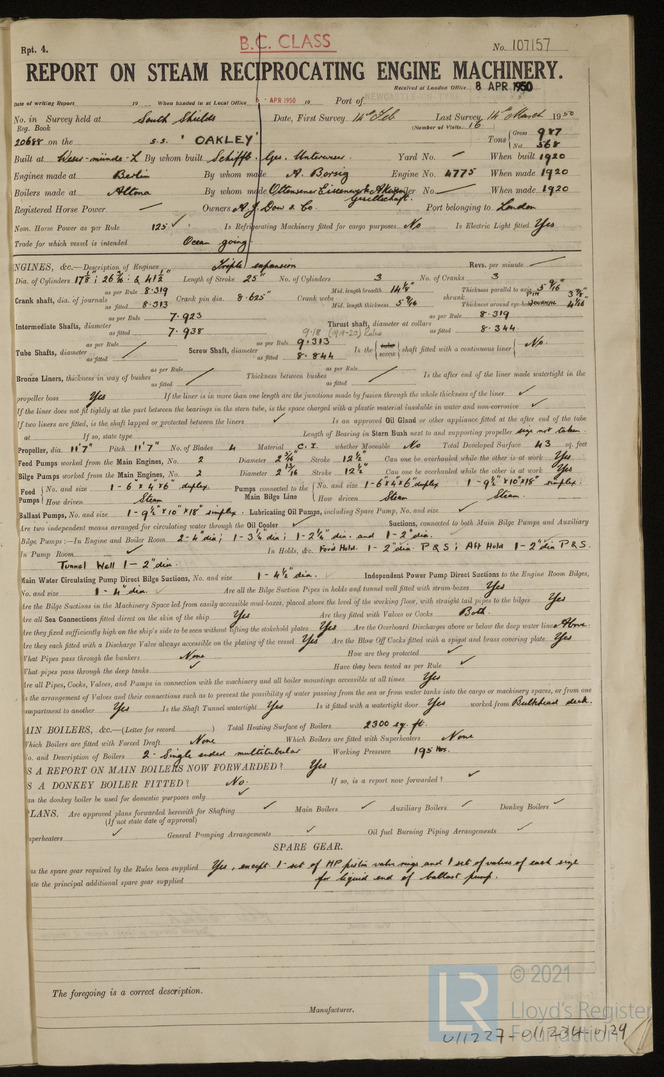 B.C. CLASS
Rpt. 4. No. 107157
REPORT ON STEAM RECIPROCATING ENGINE MACHINERY.
Received at London Office 8 APR 1950
Date of writing Report 19 When handed in at Local Office APR 1950 19 Port of NEWCASTLE-ON-TYNE
No. in Survey held at South Shields Date, First Survey 14th Feb Last Survey 14th March 1950
Reg. Book (Number of Visits 16
20688 on the S.S. "OAKLEY" Tons Gross 987 Net 568
Built at By whom built Schiffb. Ges. Unterweser Yard No. When built 1920
Engines made at Berlin By whom made A. Borsig Engine No. 4775 When made 1920
Boilers made at Altona By whom made Ottensener Eisenwerk Boiler No. When made 1920
Registered Horse Power Owners A. J. Dow & Co. Port belonging to London
Nom. Horse Power as per Rule 125 Is Refrigerating Machinery fitted for cargo purposes No Is Electric Light fitted Yes
Trade for which vessel is intended Ocean going
ENGINES, &c.—Description of Engines Triple expansion Revs. per minute
Dia. of Cylinders Length of Stroke 25" No. of Cylinders 3 No. of Cranks 3
Crank shaft, dia. of journals as per Rule 8.319 as fitted 8.313 Crank pin dia. 8.625" Crank webs Mid. length breadth 14½" Mid. length thickness 5 9/16 shrunk Thickness parallel to axis 5 9/16" Thickness around eye
Intermediate Shafts, diameter as per Rule 7.923 as fitted 7.938 Thrust shaft, diameter at collars as per Rule 8.319 as fitted 8.344
Tube Shafts, diameter as per Rule as fitted Screw Shaft, diameter as per Rule 9.313 as fitted 8.844 Is the tube screw shaft fitted with a continuous liner No.
Bronze Liners, thickness in way of bushes as per Rule as fitted Thickness between bushes as per Rule as fitted Is the after end of the liner made watertight in the
propeller boss Yes If the liner is in more than one length are the junctions made by fusion through the whole thickness of the liner
If the liner does not fit tightly at the part between the bearings in the stern tube, is the space charged with a plastic material insoluble in water and non-corrosive
If two liners are fitted, is the shaft lapped or protected between the liners Is an approved Oil Gland or other appliance fitted at the after end of the tube
If so, state type Length of Bearing in Stern Bush next to and supporting propeller size not taken.
Propeller, dia. 11'7" Pitch 11'7" No. of Blades 4 Material C.I. whether Moveable No Total Developed Surface 43 sq. feet
Feed Pumps worked from the Main Engines, No. 2 Diameter Stroke 12½" Can one be overhauled while the other is at work Yes
Bilge Pumps worked from the Main Engines, No. 2 Diameter Stroke 12½" Can one be overhauled while the other is at work Yes
Feed Pumps No. and size 1 - 6" x 4" x 6" duplex. How driven Steam Pumps connected to the Main Bilge Line No. and size 1 - 6"x4"x6" duplex 1 - 9½"x10"x18" simplex. How driven Steam Steam.
Ballast Pumps, No. and size 1 - 9½"x10"x18" simplex. Lubricating Oil Pumps, including Spare Pump, No. and size
Are two independent means arranged for circulating water through the Oil Cooler Suctions, connected to both Main Bilge Pumps and Auxiliary
Bilge Pumps:—In Engine and Boiler Room 2 - 4" dia; 1 - 3¼" dia; 1 - 2¼" dia. and 1 - 2" dia.
In Pump Room In Holds, &c. Ford Hold. 1 - 2" dia. P & S; Aft Hold 1 - 2" dia P & S.
Tunnel Well 1 - 2" dia.
Main Water Circulating Pump Direct Bilge Suctions, No. and size 1 - 4½" dia. Independent Power Pump Direct Suctions to the Engine Room Bilges,
No. and size 1 - 4" dia. Are all the Bilge Suction Pipes in holds and tunnel well fitted with strum-boxes Yes
Are the Bilge Suctions in the Machinery Space led from easily accessible mud-boxes, placed above the level of the working floor, with straight tail pipes to the bilges Yes
Are all Sea Connections fitted direct on the skin of the ship Yes Are they fitted with Valves or Cocks Both.
Are they fixed sufficiently high on the ship's side to be seen without lifting the stokehold plates Yes Are the Overboard Discharges above or below the deep water line Above.
Are they each fitted with a Discharge Valve always accessible on the plating of the vessel Yes Are the Blow Off Cocks fitted with a spigot and brass covering plate Yes
What Pipes pass through the bunkers None How are they protected
What pipes pass through the deep tanks Have they been tested as per Rule
Are all Pipes, Cocks, Valves, and Pumps in connection with the machinery and all boiler mountings accessible at all times Yes
Is the arrangement of Valves and their connections such as to prevent the possibility of water passing from the sea or from water tanks into the cargo or machinery spaces, or from one
compartment to another Yes Is the Shaft Tunnel watertight Yes Is it fitted with a watertight door Yes worked from Bulkhead deck.
MAIN BOILERS, &c.—(Letter for record ) Total Heating Surface of Boilers 2300 sq. ft.
Which Boilers are fitted with Forced Draft None Which Boilers are fitted with Superheaters None
No. and Description of Boilers 2 - Single ended multitubular Working Pressure 195 lbs.
IS A REPORT ON MAIN BOILERS NOW FORWARDED? Yes
IS A DONKEY BOILER FITTED? No. If so, is a report now forwarded?
Can the donkey boiler be used for domestic purposes only
PLANS. Are approved plans forwarded herewith for Shafting Main Boilers Auxiliary Boilers Donkey Boilers
(If not state date of approval)
Superheaters General Pumping Arrangements Oil fuel Burning Piping Arrangements
SPARE GEAR.
Has the spare gear required by the Rules been supplied Yes, except 1 - set of HP piston valve rings and 1 set of valves of each size
State the principal additional spare gear supplied for liquid end of ballast pump.
The foregoing is a correct description.
Manufacturer.
LR © 2021 Lloyd's Register Foundation
011227-011234-0129